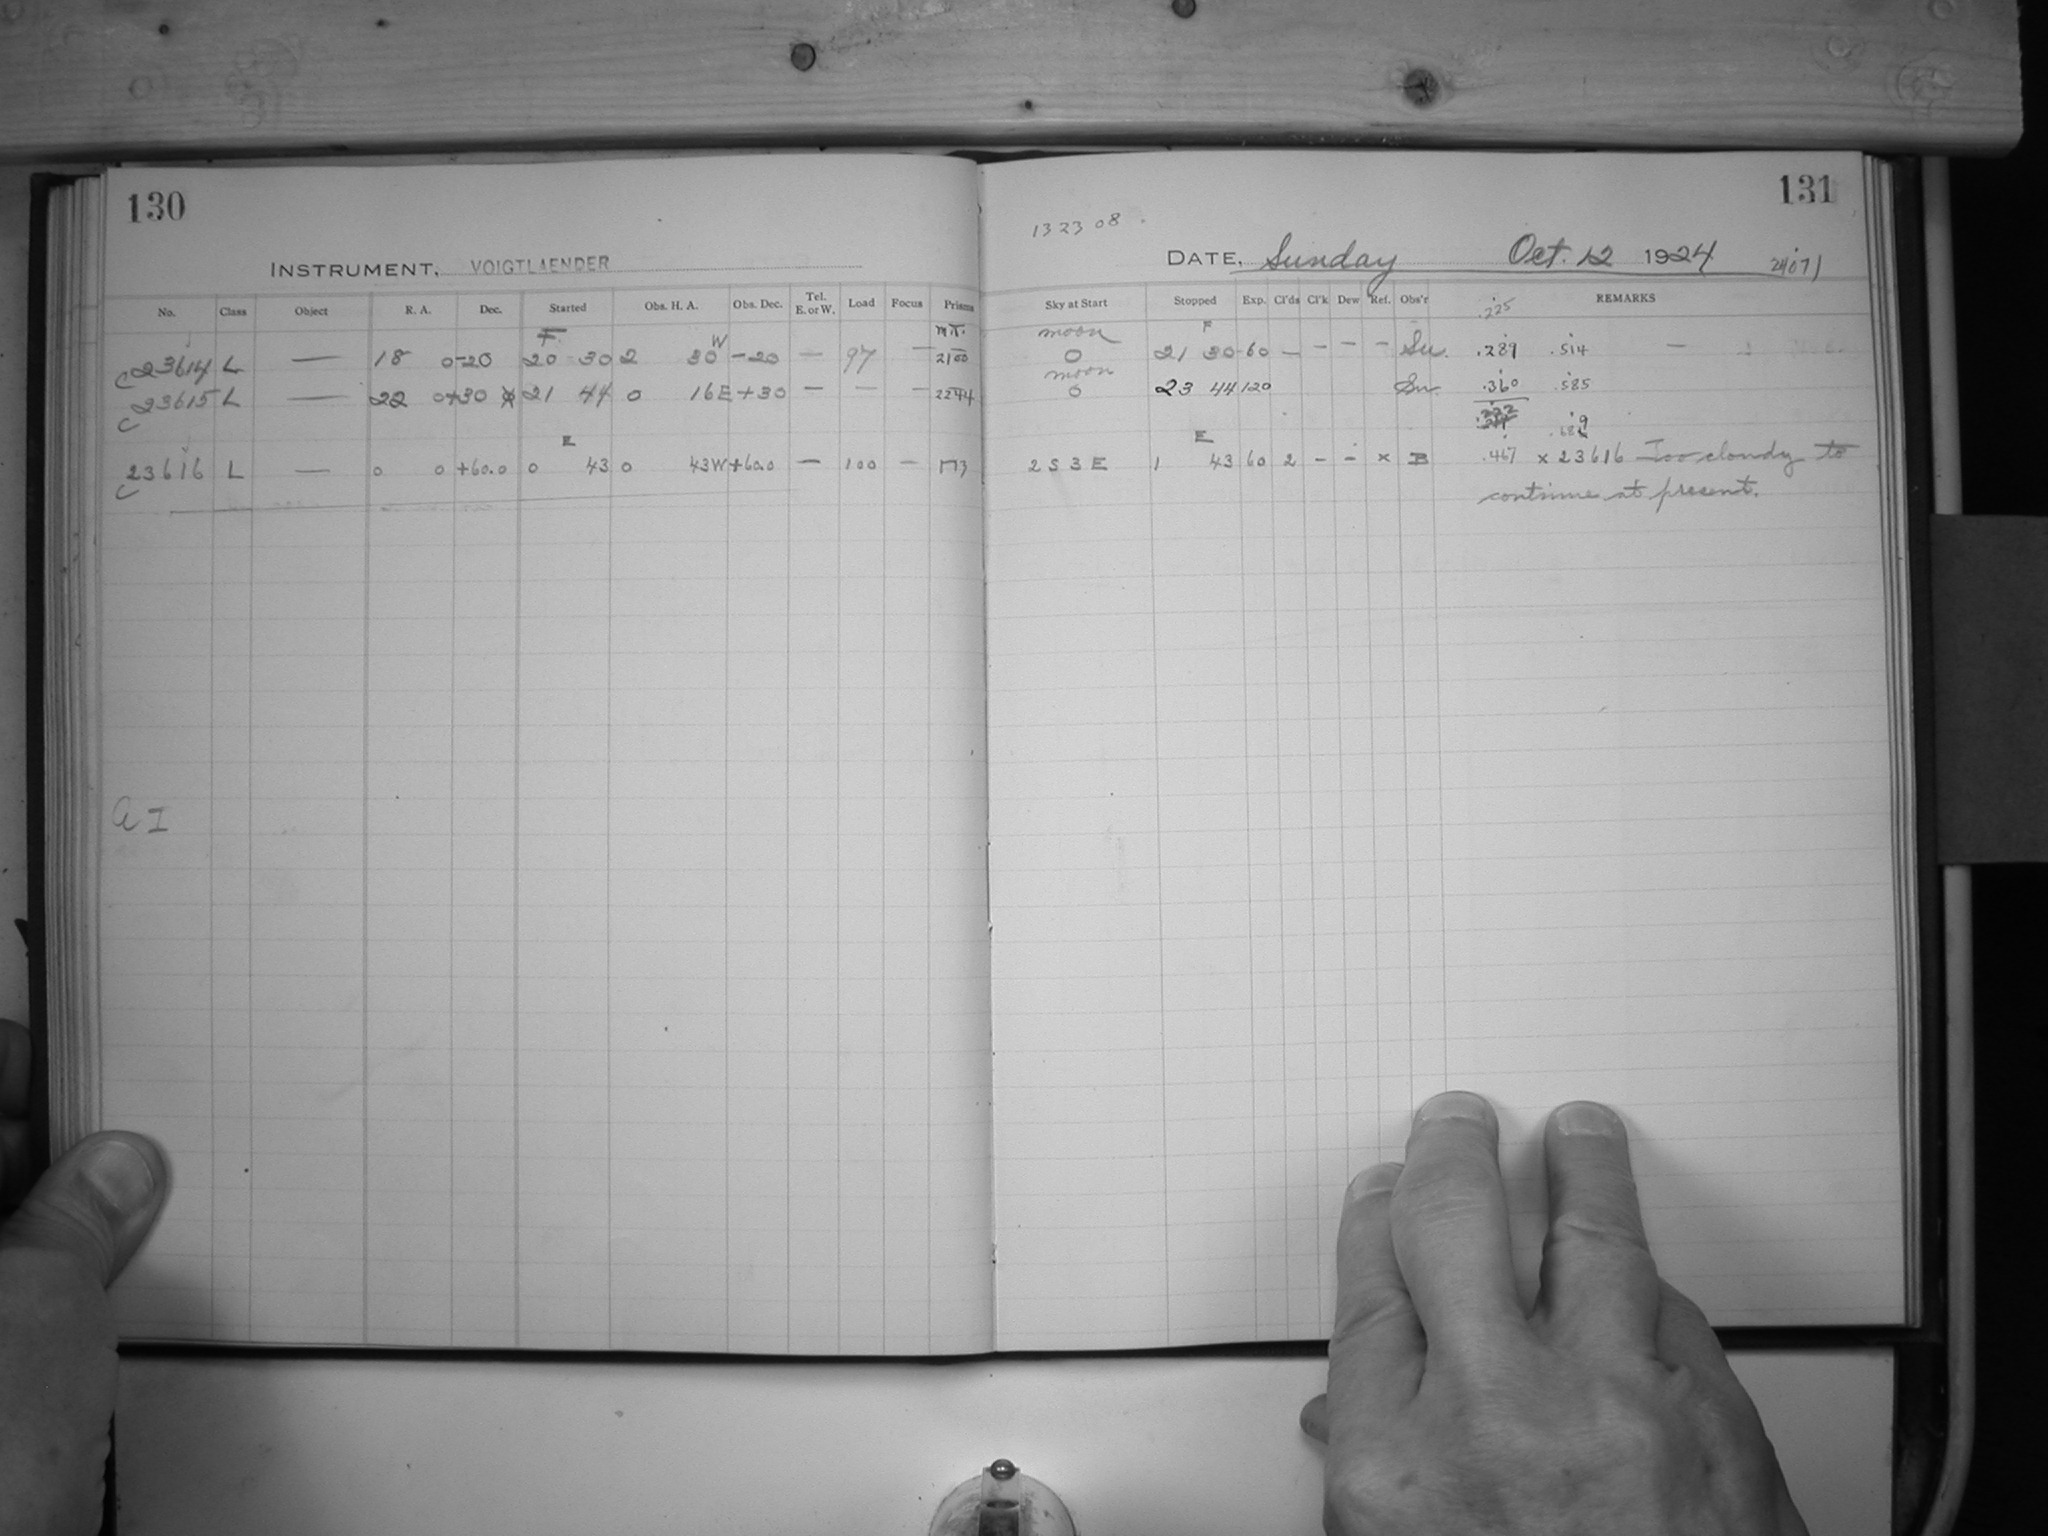 130
INSTRUMENT, VOIGTLAENDER
No. Class Object R. A. Dec. Started Obs. H. A. Obs. Dec. Tel. E. or W. Load Focus Prisms
F W
C 23614 L — 18 0 -20 20 30 2 30 -20 — 97 — 2100
C 23615 L — 22 0 +30 21 44 0 16E +30 — — — 2244
E
C 23616 L — 0 0 +60.0 0 43 0 43W +60.0 — 100 —
131
132308
DATE, Sunday Oct. 12 1924
Sky at Start Stopped Exp. Cl'ds Cl'k Dew Ref. Obs'r REMARKS
.225
moon F
0 21 30 60 — — — — Su. .289 .514 —
moon
0 23 44 120 Su. .360 .585
E
2 S 3 E 1 43 60 2 - - x B .467 x 23616 Too cloudy to
continue at present.